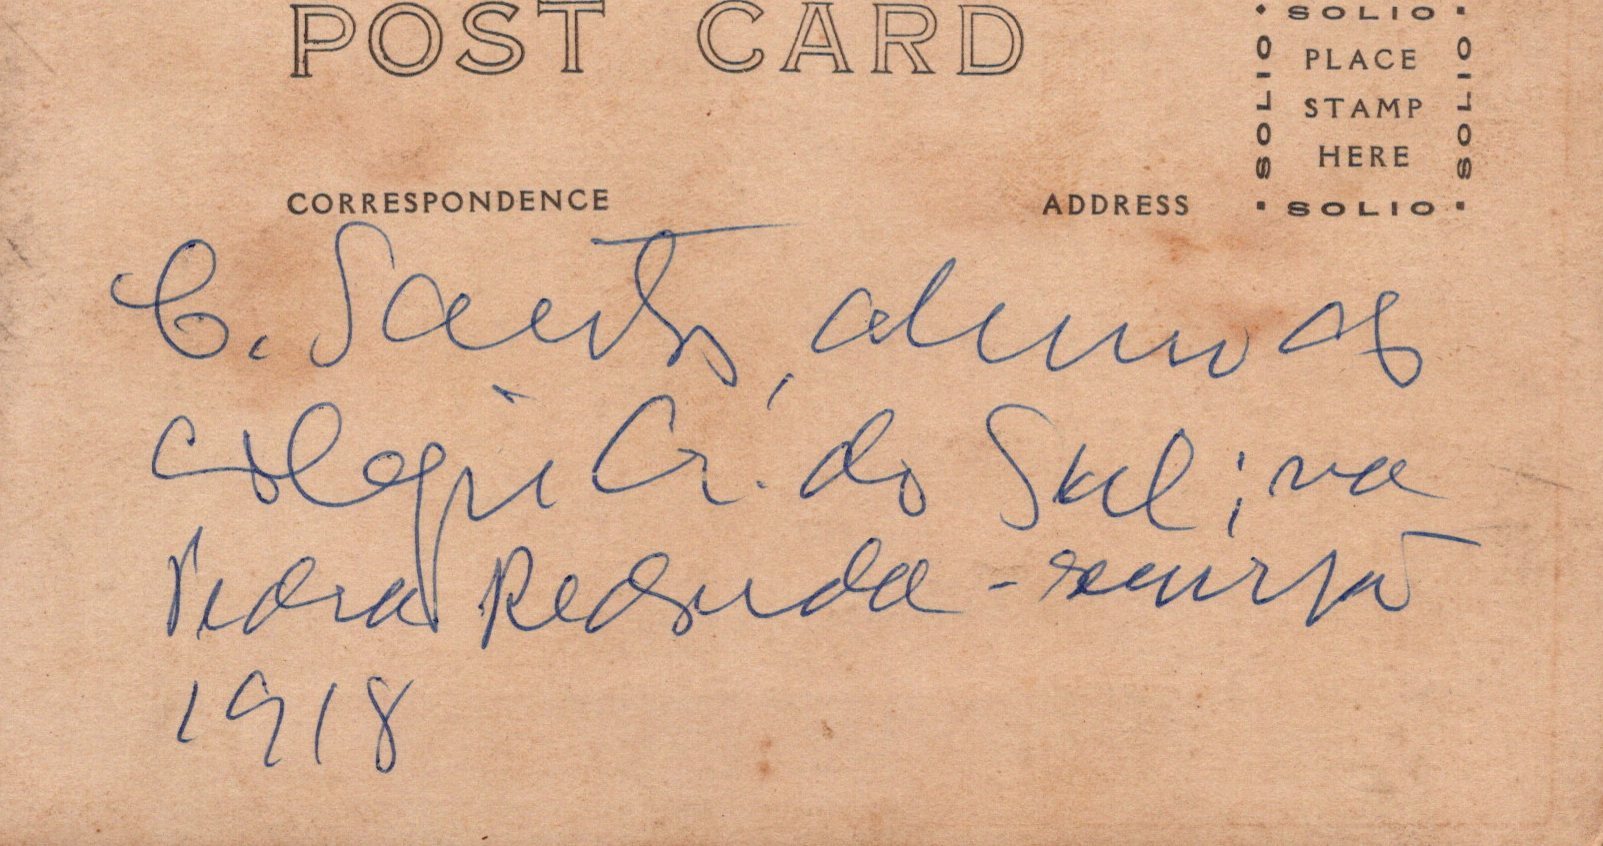 POST CARD
SOLIO
SOLIO
PLACE
STAMP
HERE
SOLIO
SOLIO
CORRESPONDENCE
ADDRESS
C. Santos, aluno do
colegio Cr. do Sul; na
Pedra Redonda - excursão
1918